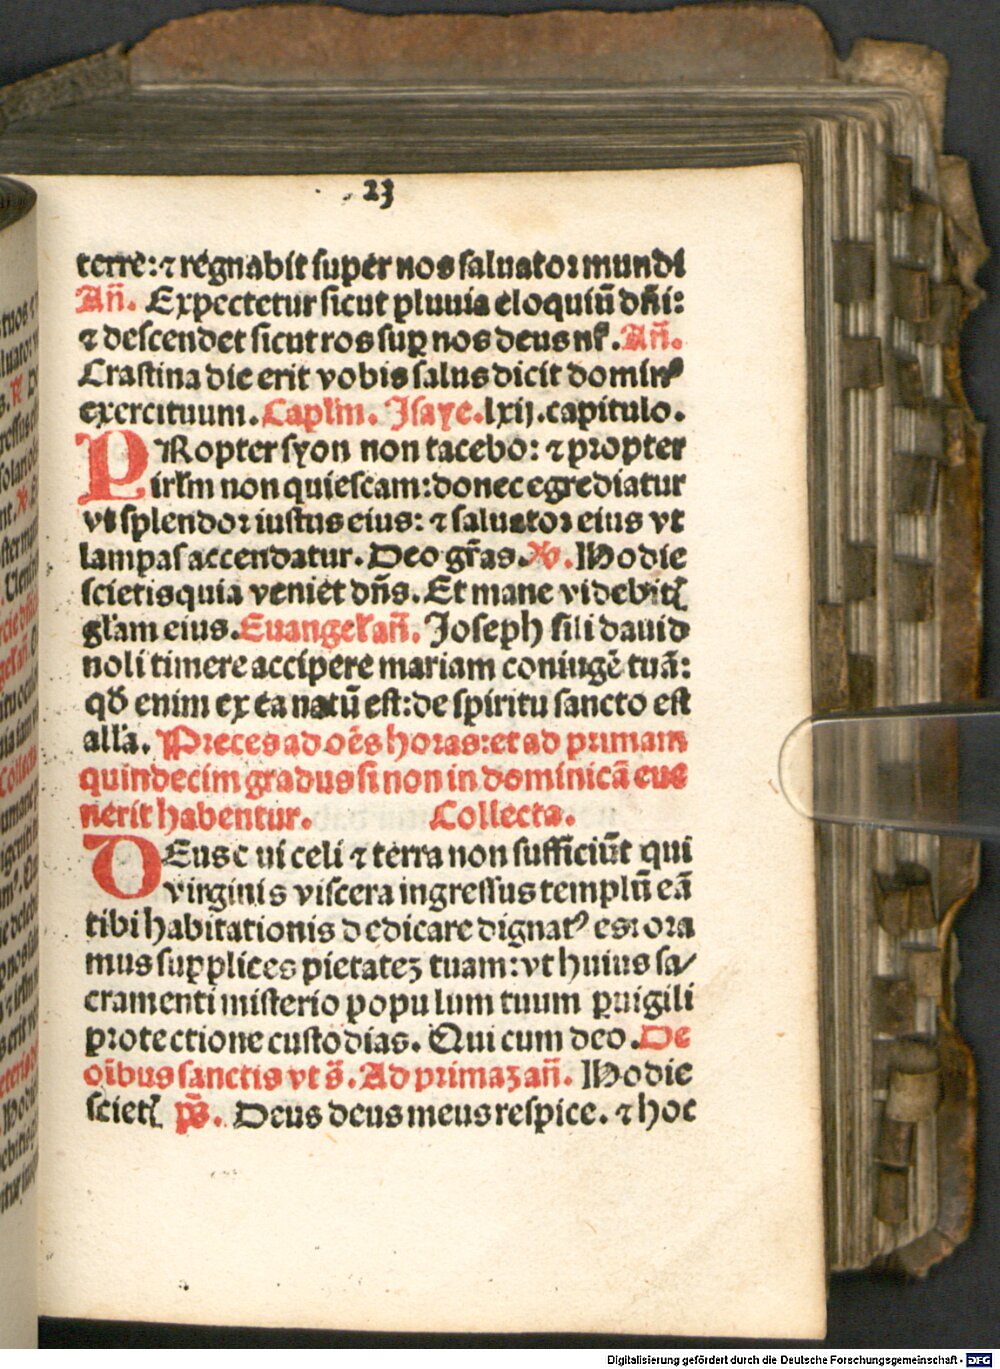 23
terre: ⁊ regnabit super nos saluator mundi
Añ. Expectetur sicut pluuia eloquiū dñi:
⁊ descendet sicut ros suꝑ nos deus nr̄. Añ.
Crastina die erit vobis salus dicit dominꝰ
exercituum. Capľm. Jsaye. lxij. capitulo.
PRopter syon non tacebo: ⁊ propter
irľm non quiescam: donec egrediatur
vt splendor iustus eius: ⁊ saluator eius vt
lampas accendatur. Deo gr̄as. ℣. Hodie
scietis quia veniet dñs. Et mane videbitꝭ
gľam eius. Euangeľ añ. Joseph fili dauid
noli timere accipere mariam coniugē tuā:
qđ enim ex ea natū est: de spiritu sancto est
alľa. Preces ad oēs horas: et ad primam
quindecim gradus si non in dominicā eue
nerit habentur. Collecta.
DEus cui celi ⁊ terra non sufficiūt qui
virginis viscera ingressus templū eā
tibi habitationis dedicare dignatꝰ es: ora
mus supplices pietateꝫ tuam: vt huius sa/
cramenti misterio populum tuum ꝑuigili
protectione custodias. Qui cum deo. De
oībus sanctis vt s̄. Ad primaꝫ añ. Hodie
scietꝭ p̄s. Deus deus meus respice. ⁊ hoc
Digitalisierung gefördert durch die Deutsche Forschungsgemeinschaft - DFG